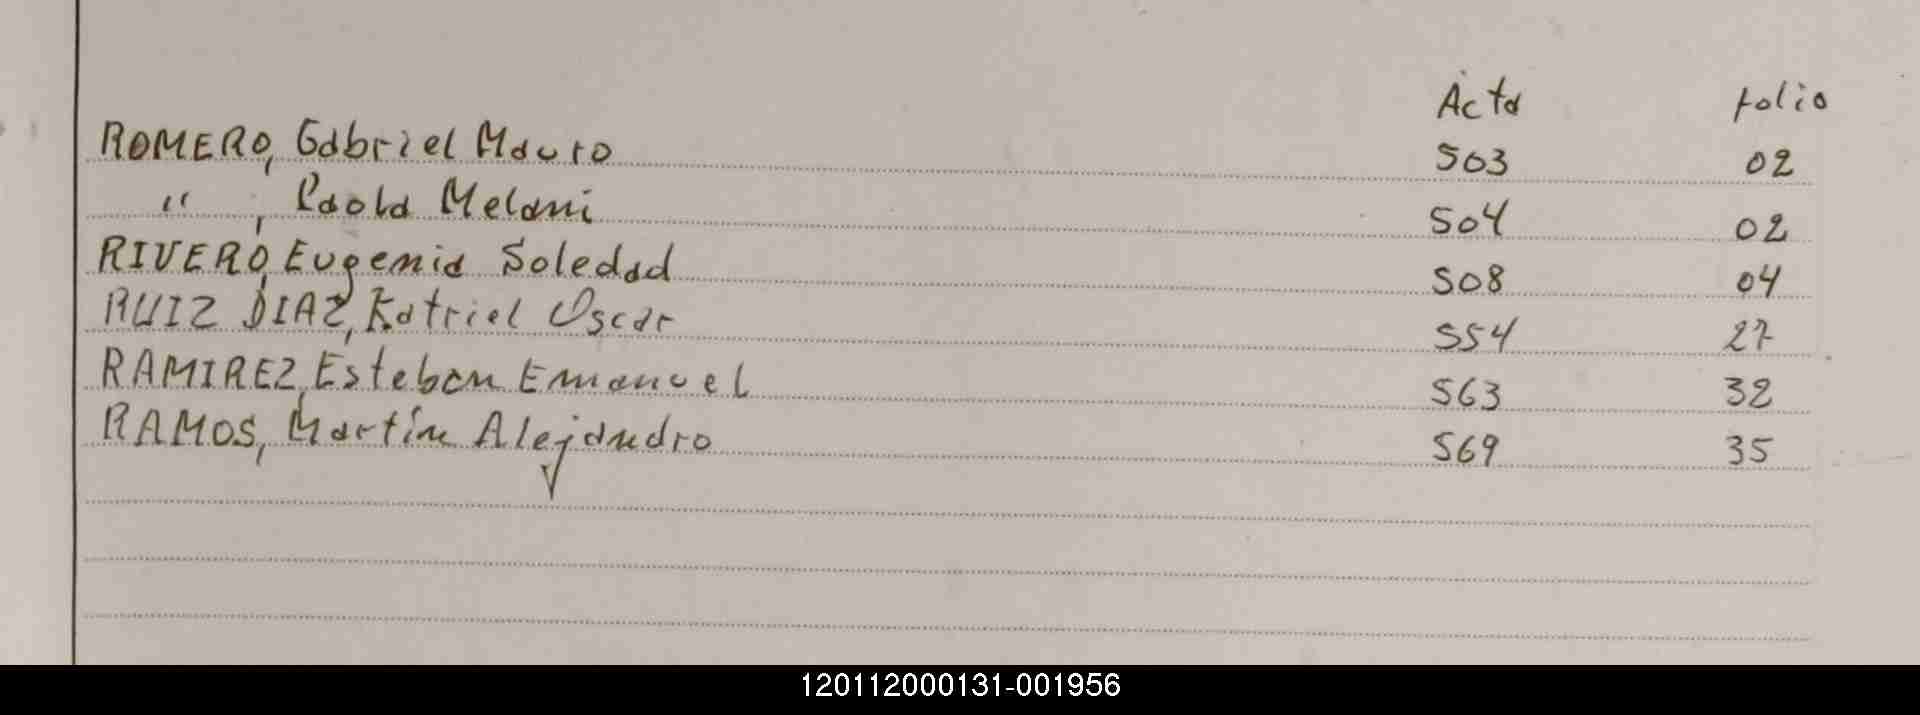 Acta folio
ROMERO, Gabriel Mauro 503 02
" , Paola Melani 504 02
RIVERO, Eugenia Soledad 508 04
RUIZ DIAZ, Katriel Oscar 554 27
RAMIREZ, Esteban Emanuel 563 32
RAMOS, Martín Alejandro 569 35
120112000131-001956